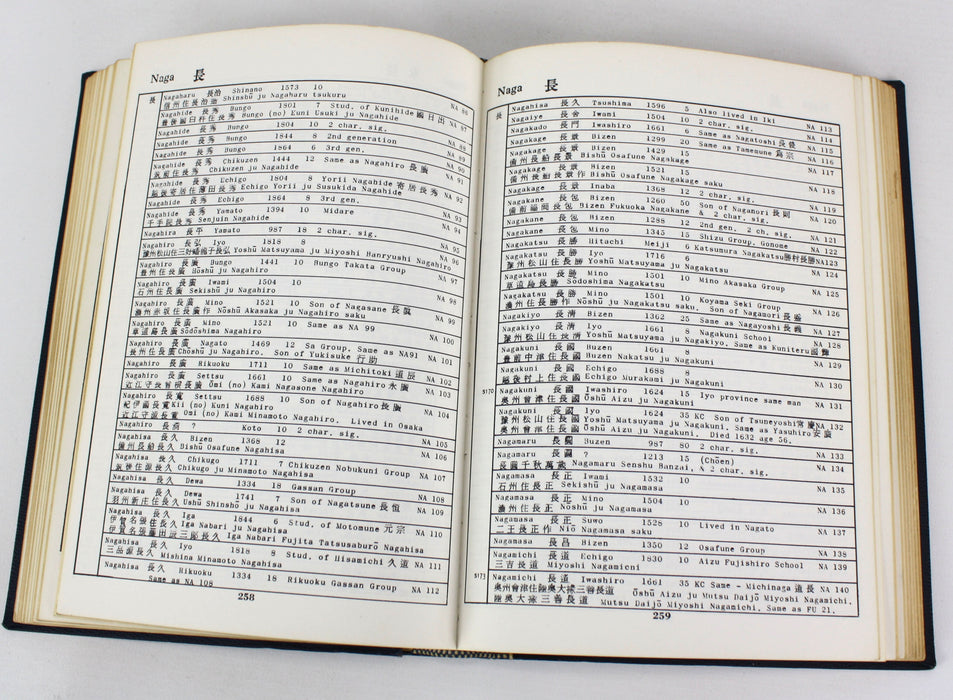 Naga 長
長
Nagaharu 長治 Shinano 1573 10
信州住長治造 Shinshū ju Nagaharu tsukuru NA 86
Nagahide 長秀 Bungo 1801 7 Stud. of Kunihide
豊後臼杵住長秀 Bungo (no) Kuni Usuki ju Nagahide NA 87
Nagahide 長秀 Bungo 1804 10 2 char. sig. NA 88
Nagahide 長秀 Bungo 1844 8 2nd generation NA 89
Nagahide 長秀 Bungo 1864 6 3rd gen. NA 90
Nagahide 長秀 Chikuzen 1444 12 Same as Nagahiro 長廣
筑前住長秀 Chikuzen ju Nagahide NA 91
Nagahide 長秀 Echigo 1804 8 Yorii Nagahide 寄居長秀
Echigo Yorii ju Susukida Nagahide NA 92
Nagahide 長秀 Echigo 1864 8 3rd gen. NA 93
Nagahide 長秀 Yamato 1394 10 Midare
千手院長秀 Senjuin Nagahide NA 94
Nagahira 長平 Yamato 987 18 2 char. sig. NA 95
Nagahiro 長弘 Iyo 1818 8
Yoshū Matsuyama ju Miyoshi Hanryushi Nagahiro NA 96
Nagahiro 長廣 Bungo 1441 10 Bungo Takata Group
豊州住長廣 Hōshū ju Nagahiro NA 97
Nagahiro 長廣 Iwami 1504 10
石州住長廣 Sekishū ju Nagahiro NA 98
Nagahiro 長廣 Mino 1521 10 Son of Nagasane 長眞
濃州赤坂住長廣作 Nōshū Akasaka ju Nagahiro saku NA 99
Nagahiro 長廣 Mino 1521 10 Same as NA 99
草道島長廣 Sōdōshima Nagahiro NA 100
Nagahiro 長廣 Nagato 1469 12 Sa Group. Same as NA91
長州住長廣 Chōshū ju Nagahiro. Son of Yukisuke 行助 NA 101
Nagahiro 長廣 Rikuoku 1711 10 Same as Michitoki 道辰 NA 102
Nagahiro 長廣 Settsu 1661 10 Same as Nagahiro 永廣
近江守長曽根長廣 Ōmi (no) Kami Nagasone Nagahiro NA 103
Nagahiro 長寛 Settsu 1688 10 Son of Nagahiro 長廣
紀伊國長寛 Kii (no) Kuni Nagahiro NA 104
近江守源長寛 Omi (no) Kami Minamoto Nagahiro. Lived in Osaka
Nagahiro 長高 ? Koto 10 2 char. sig. NA 105
Nagahisa 長久 Bizen 1368 12
備州長船長久 Bishū Osafune Nagahisa NA 106
Nagahisa 長久 Chikugo 1711 7 Chikuzen Nobukuni Group
筑後住源長久 Chikugo ju Minamoto Nagahisa NA 107
Nagahisa 長久 Dewa 1334 18 Gassan Group NA 108
Nagahisa 長久 Dewa 1741 7 Son of Nagatsune 長恒
羽州新庄住長久 Ushū Shinshō ju Nagahisa NA 109
Nagahisa 長久 Iga 1844 6 Stud. of Motomune 元宗
伊賀名張住長久 Iga Nabari ju Nagahisa NA 110
Iga Nabari Fujita Tatsusaburō Nagahisa
Nagahisa 長久 Iyo 1818 8 Stud. of Hisamichi 久道
三品源長久 Mishina Minamoto Nagahisa NA 111
Nagahisa 長久 Rikuoku 1334 18 Rikuoku Gassan Group
Same as NA 108 NA 112
258
Naga 長
長
Nagahisa 長久 Tsushima 1596 5 Also lived in Iki NA 113
Nagaiye 長舍 Iwami 1504 10 2 char. sig. NA 114
Nagakado 長門 Iwashiro 1661 6 Same as Nagatoshi 長俊 NA 115
Nagakage 長景 Bizen 1299 20 Same as Tamemune 爲宗 NA 116
Nagakage 長景 Bizen 1429 15
備州長船長景 Bishū Osafune Nagakage NA 117
Nagakage 長景 Bizen 1521 15
備州長船長景作 Bishū Osafune Nagakage saku NA 118
Nagakage 長景 Inaba 1368 12 2 char. sig. NA 119
Nagakane 長包 Bizen 1260 50 Son of Nagamori 長則
備前福岡長包 Bizen Fukuoka Nagakane & 2 char. sig. NA 120
Nagakane 長包 Bizen 1288 12 2nd gen. 2 ch. sig. NA 121
Nagakane 長包 Mino 1345 15 Shizu Group. Gonome NA 122
Nagakatsu 長勝 Hitachi Meiji 6 Katsumura Nagakatsu 勝村長勝 NA123
Nagakatsu 長勝 Iyo 1716 6
豫州松山住長勝 Yoshū Matsuyama ju Nagakatsu NA 124
Nagakatsu 長勝 Mino 1501 10 Mino Akasaka Group
草道島長勝 Sōdoshima Nagakatsu NA 125
Nagakatsu 長勝 Mino 1501 10 Koyama Seki Group
濃州住長勝作 Nōshū ju Nagakatsu saku. Son of Nagamori 長盛 NA 126
Nagakiyo 長清 Bizen 1362 25 Same as Nagayoshi 長義 NA 127
Nagakiyo 長清 Iyo 1661 8 Nagakuni School
豫州松山住長清 Yoshū Matsuyama ju Nagakiyo. Same as Kuniteru 國輝 NA 128
Nagakuni 長國 Buzen 1661 8
豊前中津住長國 Buzen Nakatsu ju Nagakuni NA 129
Nagakuni 長國 Echigo 1688 8
越後村上住長國 Echigo Murakami ju Nagakuni NA 130
S170 Nagakuni 長國 Iwashiro 1624 15 Iyo province same man
奥州會津住長國 Ōshū Aizu ju Nagakuni NA 131
Nagakuni 長國 Iyo 1624 35 KC Son of Tsuneyoshi 常慶 NA132
豫州松山住長國 Yoshū Matsuyama ju Nagakuni. Same as Yasuhiro 安廣
奥州會津住長國 Ōshū Aizu ju Nagakuni. Died 1632 age 56.
Nagamaru Buzen 987 80 2 char. sig. NA 133
Nagamaru ? 1213 15 (Chōen)
Nagamaru Senshu Banzai, & 2 char. sig. NA 134
Nagamasa 長正 Iwami 1532 10
石州住長正 Sekishū ju Nagamasa NA 135
Nagamasa 長正 Mino 1504 10
濃州住長正 Nōshū ju Nagamasa NA 136
Nagamasa 長正 Suwo 1528 10 Lived in Nagato
二王長正作 Niō Nagamasa saku NA 137
Nagamasa 長昌 Bizen 1350 12 Osafune Group NA 138
Nagamichi 長道 Echigo 1830 10 Aizu Fujishiro School
三吉長道 Miyoshi Nagamichi NA 139
S173 Nagamichi 長道 Iwashiro 1661 35 KC Same - Michinaga 道長 NA 140
奥州會津住陸奥大掾三善長道 Ōshū Aizu ju Mutsu Daijō Miyoshi Nagamichi.
陸奥大掾三善長道 Mutsu Daijō Miyoshi Nagamichi. Same as FU 21.
259